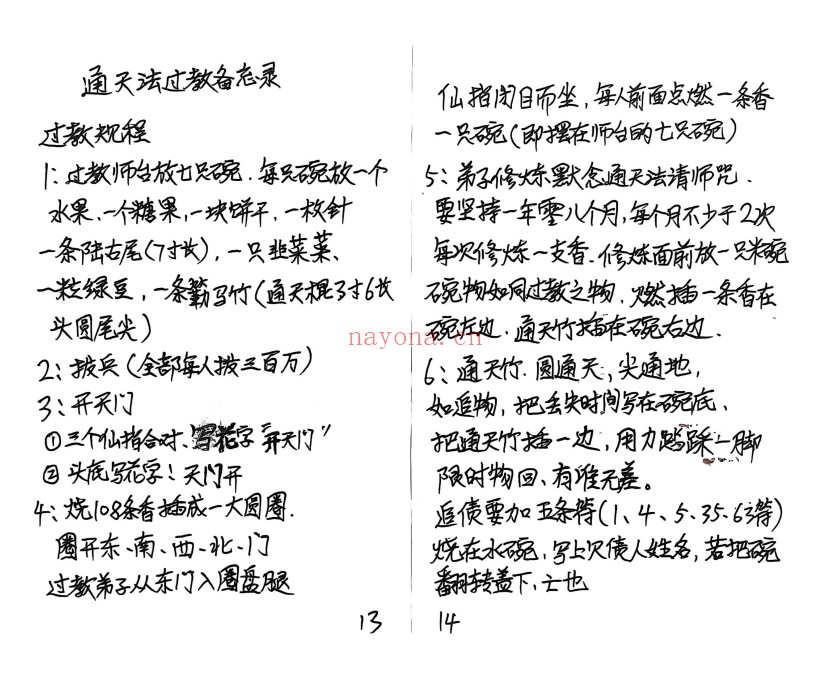 通天法过教备忘录
过教规程
1:过教师台放七只碗.每只碗放一个
水果、一个糖果,一块饼干,一枚针
一条陆古尾(7寸长),一只韭菜菜、
一粒绿豆,一条勤马竹(通天棍3寸6长
头圆尾尖)
2:拨兵(全部每人拨三百万)
3:开天门
①三个仙指合对、写花字“开天门”
②头底写花字!天门开
4:烧108条香插成一大圆圈.
圈开东、南、西、北、门
过教弟子从东门入圈盘腿
13
仙指闭目而坐,每人前面点燃一条香
一只碗(即摆在师台的七只碗)
5:弟子修炼默念通天法请师咒.
要坚持一年零八个月,每个月不少于2次
每次修炼一支香.修炼面前放一只米碗
碗物如同过教之物.燃插一条香在
碗左边.通天竹插在碗右边.
6:通天竹.圆通天,尖通地,
如追物,把丢失时间写在碗底、
把通天竹插一边,用力踏踩一脚
限时物回、有准无差。
追债要加五条符(1、4、5.35.63等)
烧在水碗,写上欠债人姓名,若把碗
翻转盖下、亡也
14
nayona.cn